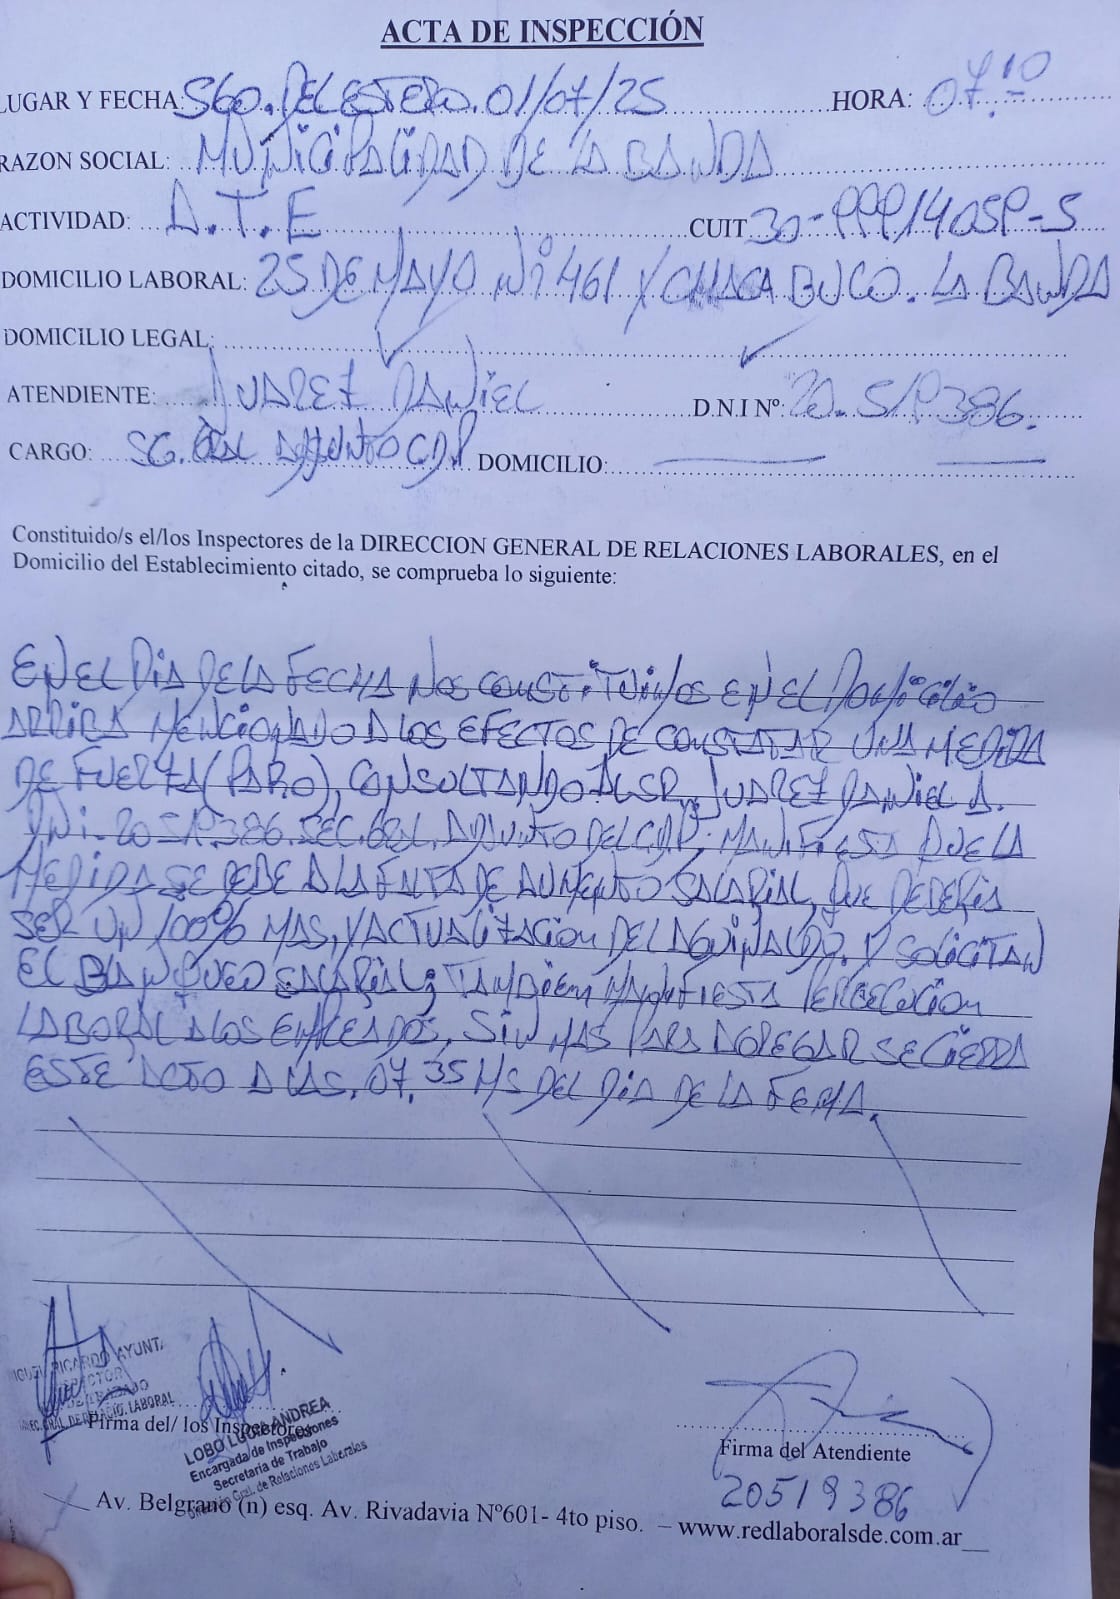 ACTA DE INSPECCIÓN
LUGAR Y FECHA: SGO. DEL ESTERO. 01/07/25 HORA: 07:10
RAZON SOCIAL: MUNICIPALIDAD DE LA BANDA
ACTIVIDAD: A.T.E CUIT 30-99914059-5
DOMICILIO LABORAL: 25 DE MAYO Nº 461 Y CHACABUCO. LA BANDA
DOMICILIO LEGAL:
ATENDIENTE: JUAREZ DANIEL D.N.I Nº: 20.519386.
CARGO: SG. GRAL ADJUNTO CDP DOMICILIO:
Constituido/s el/los Inspectores de la DIRECCION GENERAL DE RELACIONES LABORALES, en el
Domicilio del Establecimiento citado, se comprueba lo siguiente:
EN EL DIA DE LA FECHA NOS CONSTITUIMOS EN EL DOMICILIO
ARRIBA MENCIONADO A LOS EFECTOS DE CONSTATAR UNA MEDIDA
DE FUERZA (PARO), CONSULTANDO AL SR. JUAREZ DANIEL A.
DNI-20519386. SEC. GRAL. ADJUNTO DEL C.D.P; MANIFIESTA QUE LA
MEDIDA SE DEBE A LA FALTA DE AUMENTO SALARIAL, QUE DEBERIA
SER UN 100% MAS, Y ACTUALIZACION DEL AGUINALDO. Y SOLICITAN
EL BLANQUEO SALARIAL; TAMBIEN MANIFIESTA PERSECUCION
LABORAL A LOS EMPLEADOS, SIN MAS PARA AGREGAR SE CIERRA
ESTE ACTO A LAS. 07,35 HS DEL DIA DE LA FECHA.
MIGUEL RICARDO AYUNTA
INSPECTOR
DE TRABAJO
DIREC. GRAL. DE RELACIO. LABORAL
Firma del/ los Inspectores
LOBO LUCIA ANDREA
Encargada de Inspecciones
Secretaria de Trabajo
Dirección Gral. de Relaciones Laborales
Firma del Atendiente
20519386
Av. Belgrano (n) esq. Av. Rivadavia Nº601- 4to piso. – www.redlaboralsde.com.ar